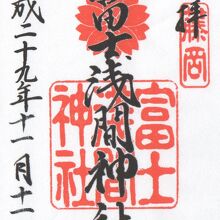 奉拝
富士浅間神社
富士
浅間
神社
成二十九年十一月十一